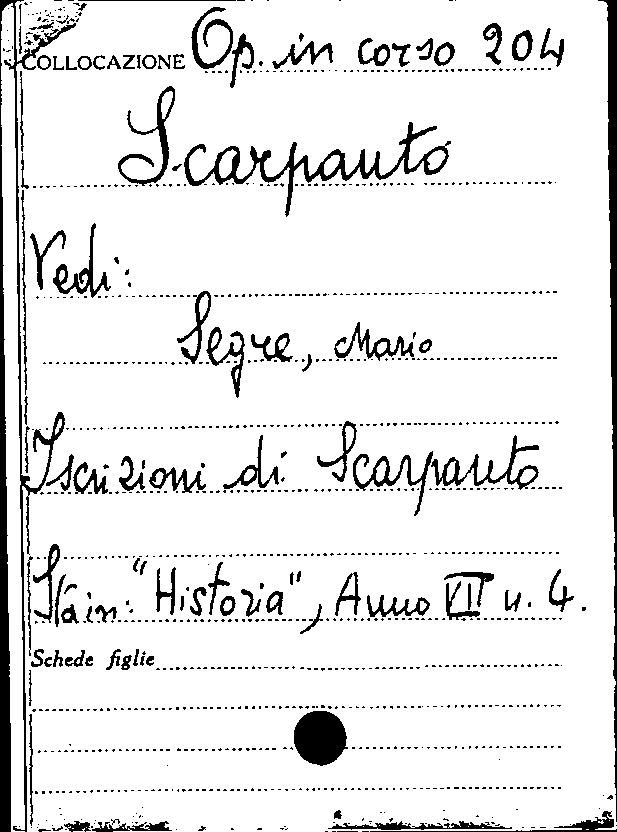 COLLOCAZIONE Op. in corso 204
Scarpanto
Vedi:
Segre, Mario
Iscrizioni di Scarpanto
Sta in: "Historia", Anno VII n. 4.
Schede figlie